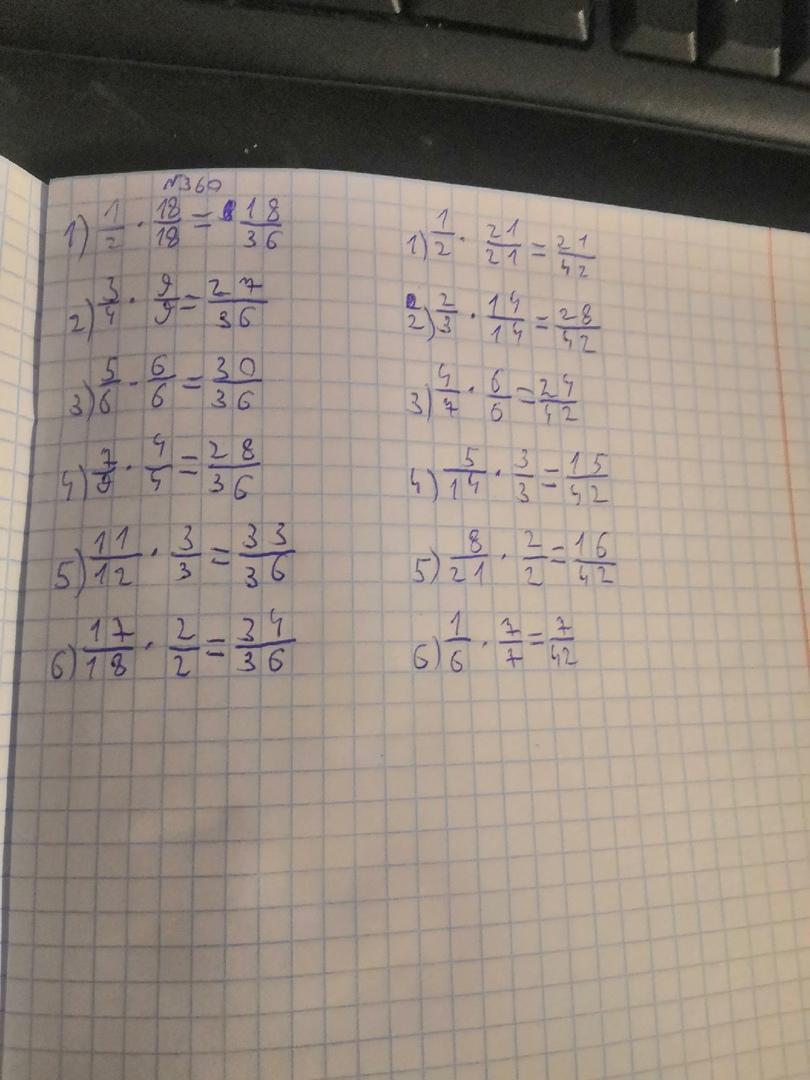 №360
1) 1/2 · 18/18 = 18/36
2) 3/4 · 9/9 = 27/36
3) 5/6 · 6/6 = 30/36
4) 7/9 · 4/4 = 28/36
5) 11/12 · 3/3 = 33/36
6) 17/18 · 2/2 = 34/36
1) 1/2 · 21/21 = 21/42
2) 2/3 · 14/14 = 28/42
3) 4/7 · 6/6 = 24/42
4) 5/14 · 3/3 = 15/42
5) 8/21 · 2/2 = 16/42
6) 1/6 · 7/7 = 7/42